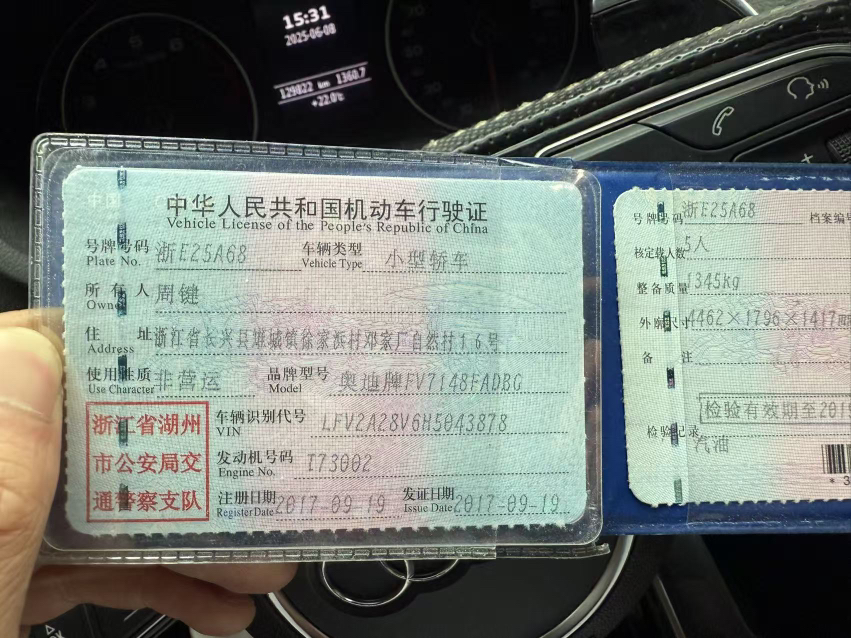 15:31
2025-06-08
129822 km 1360.7
+22.0℃
中华人民共和国机动车行驶证
Vehicle License of the People's Republic of China
号牌号码 浙E25A68 车辆类型 小型轿车
Plate No. Vehicle Type
所有人 周键
Owner
住址 浙江省长兴县雉城镇徐家浜村邓家厂自然村16号
Address
使用性质 非营运 品牌型号 奥迪牌FV7148FADBG
Use Character Model
浙江省湖州
市公安局交
通警察支队
车辆识别代号 LFV2A28V6H5043878
VIN
发动机号码 I73002
Engine No.
注册日期 2017-09-19 发证日期 2017-09-19
Register Date Issue Date
号牌号码 浙E25A68 档案编号
核定载人数 5人
整备质量 1345kg
外廓尺寸 4462×1796×1417
备注
检验有效期至2019
检验记录
汽油
* 3